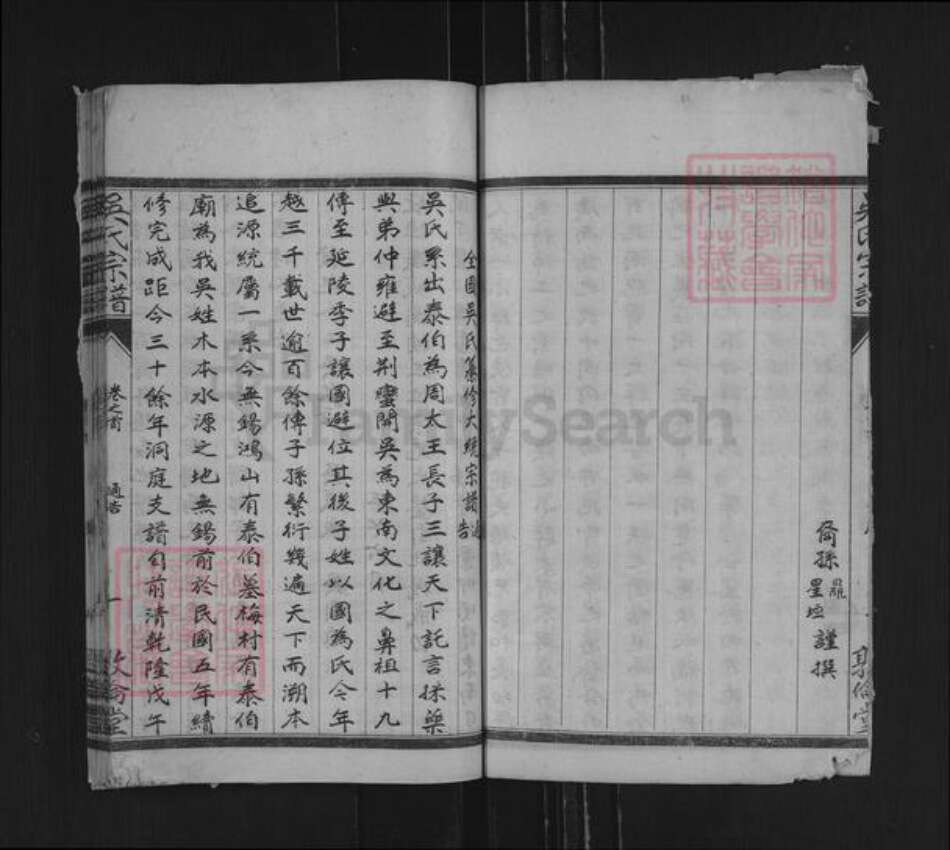 裔孫羅星垣謹撰
敦倫堂
吳氏宗譜
全國吳氏纂修大統宗譜通告
吳氏系出泰伯為周太王長子三讓天下託言採藥
與弟仲雍避至荆蠻開吳為東南文化之鼻祖十九
傳至延陵季子讓國避位其後子姓以國為氏今年
越三千載世逾百餘傳子孫繁衍幾遍天下而溯本
追源統屬一系今無錫鴻山有泰伯墓梅村有泰伯
廟為我吳姓木本水源之地無錫前於民國五年續
修完成距今三十餘年洞庭支譜自前清乾隆戊午
吳氏宗譜
卷之首
通告
一
敦倫堂
FamilySearch